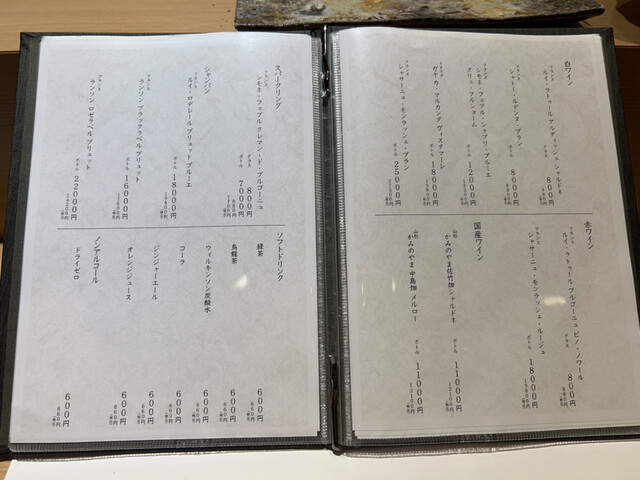 白ワイン
フランス
ルイ・ラトゥール アルディッシュ シャルドネ
グラス 800円
フランス
シャトー・ルデンヌ・ブラン
ボトル 8000円
フランス
シモネ・フェブル・シャブリ・プルーミエ
クリュ・フルショーム
ボトル 12000円
ガヤ カ・マルカンダ ヴィスタマーレ
ボトル 18000円
フランス
シャサーニュ・モンラッシェ・ブラン
ボトル 25000円
赤ワイン
フランス
ルイ・ラトゥール ブルゴーニュ ピノ・ノワール
グラス 800円
フランス
シャサーニュ・モンラッシェ・ルージュ
ボトル 18000円
国産ワイン
山形
かみのやま佐竹畑 シャルドネ
ボトル 11000円
山形
かみのやま 中島畑 メルロー
ボトル 11000円
スパークリング
フランス
シモネ・フェブル クレマン・ド・ブルゴーニュ
グラス 800円
ボトル 7000円
シャンパン
フランス
ルイ・ロデレール ブリュット プルミエ
ボトル 18000円
フランス
ランソン ブラックラベル ブリュット
ボトル 16000円
フランス
ランソン ロゼラベル ブリュット
ボトル 22000円
ソフトドリンク
緑茶 600円
660円
烏龍茶 600円
660円
ウィルキンソン炭酸水 600円
660円
コーラ 600円
660円
ジンジャーエール 600円
660円
オレンジジュース 600円
660円
ノンアルコール
ドライゼロ 600円
660円